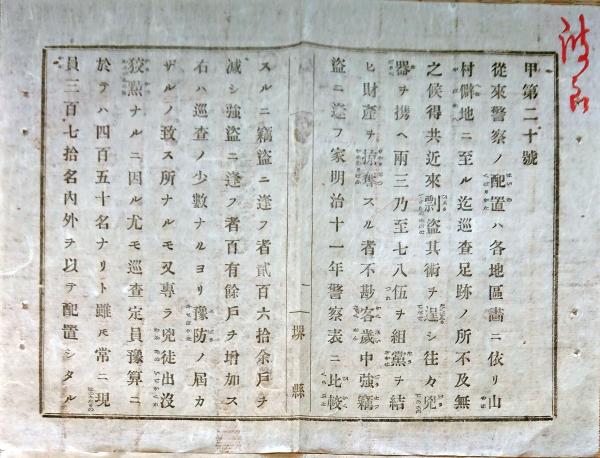 甲第二十號
從來警察ノ配置ハ各地區畵ニ依リ山
村僻地ニ至ル迄巡査足跡ノ所不及無
之候得共近來剽盜其術ヲ逞シ往々兇
器ヲ携ヘ兩三乃至七八伍ヲ組黨ヲ結
ヒ財產ヲ掠奪スル者不尠客歲中強竊
盜ニ逢フ家明治十一年警察表ニ比較
一 堺縣
スルニ竊盜ニ逢フ者貳百六拾余戶ヲ
減シ強盜ニ逢フ者百有餘戶ヲ增加ス
右ハ巡査ノ少數ナルヨリ豫防ノ屆カ
ザルノ致ス所ナルモ又專ラ兇徒出沒
狡黠ナルニ因ル尤モ巡査定員豫算ニ
於テハ四百五十名ナリト雖モ常ニ現
員三百七拾名內外ヲ以テ配置シタル